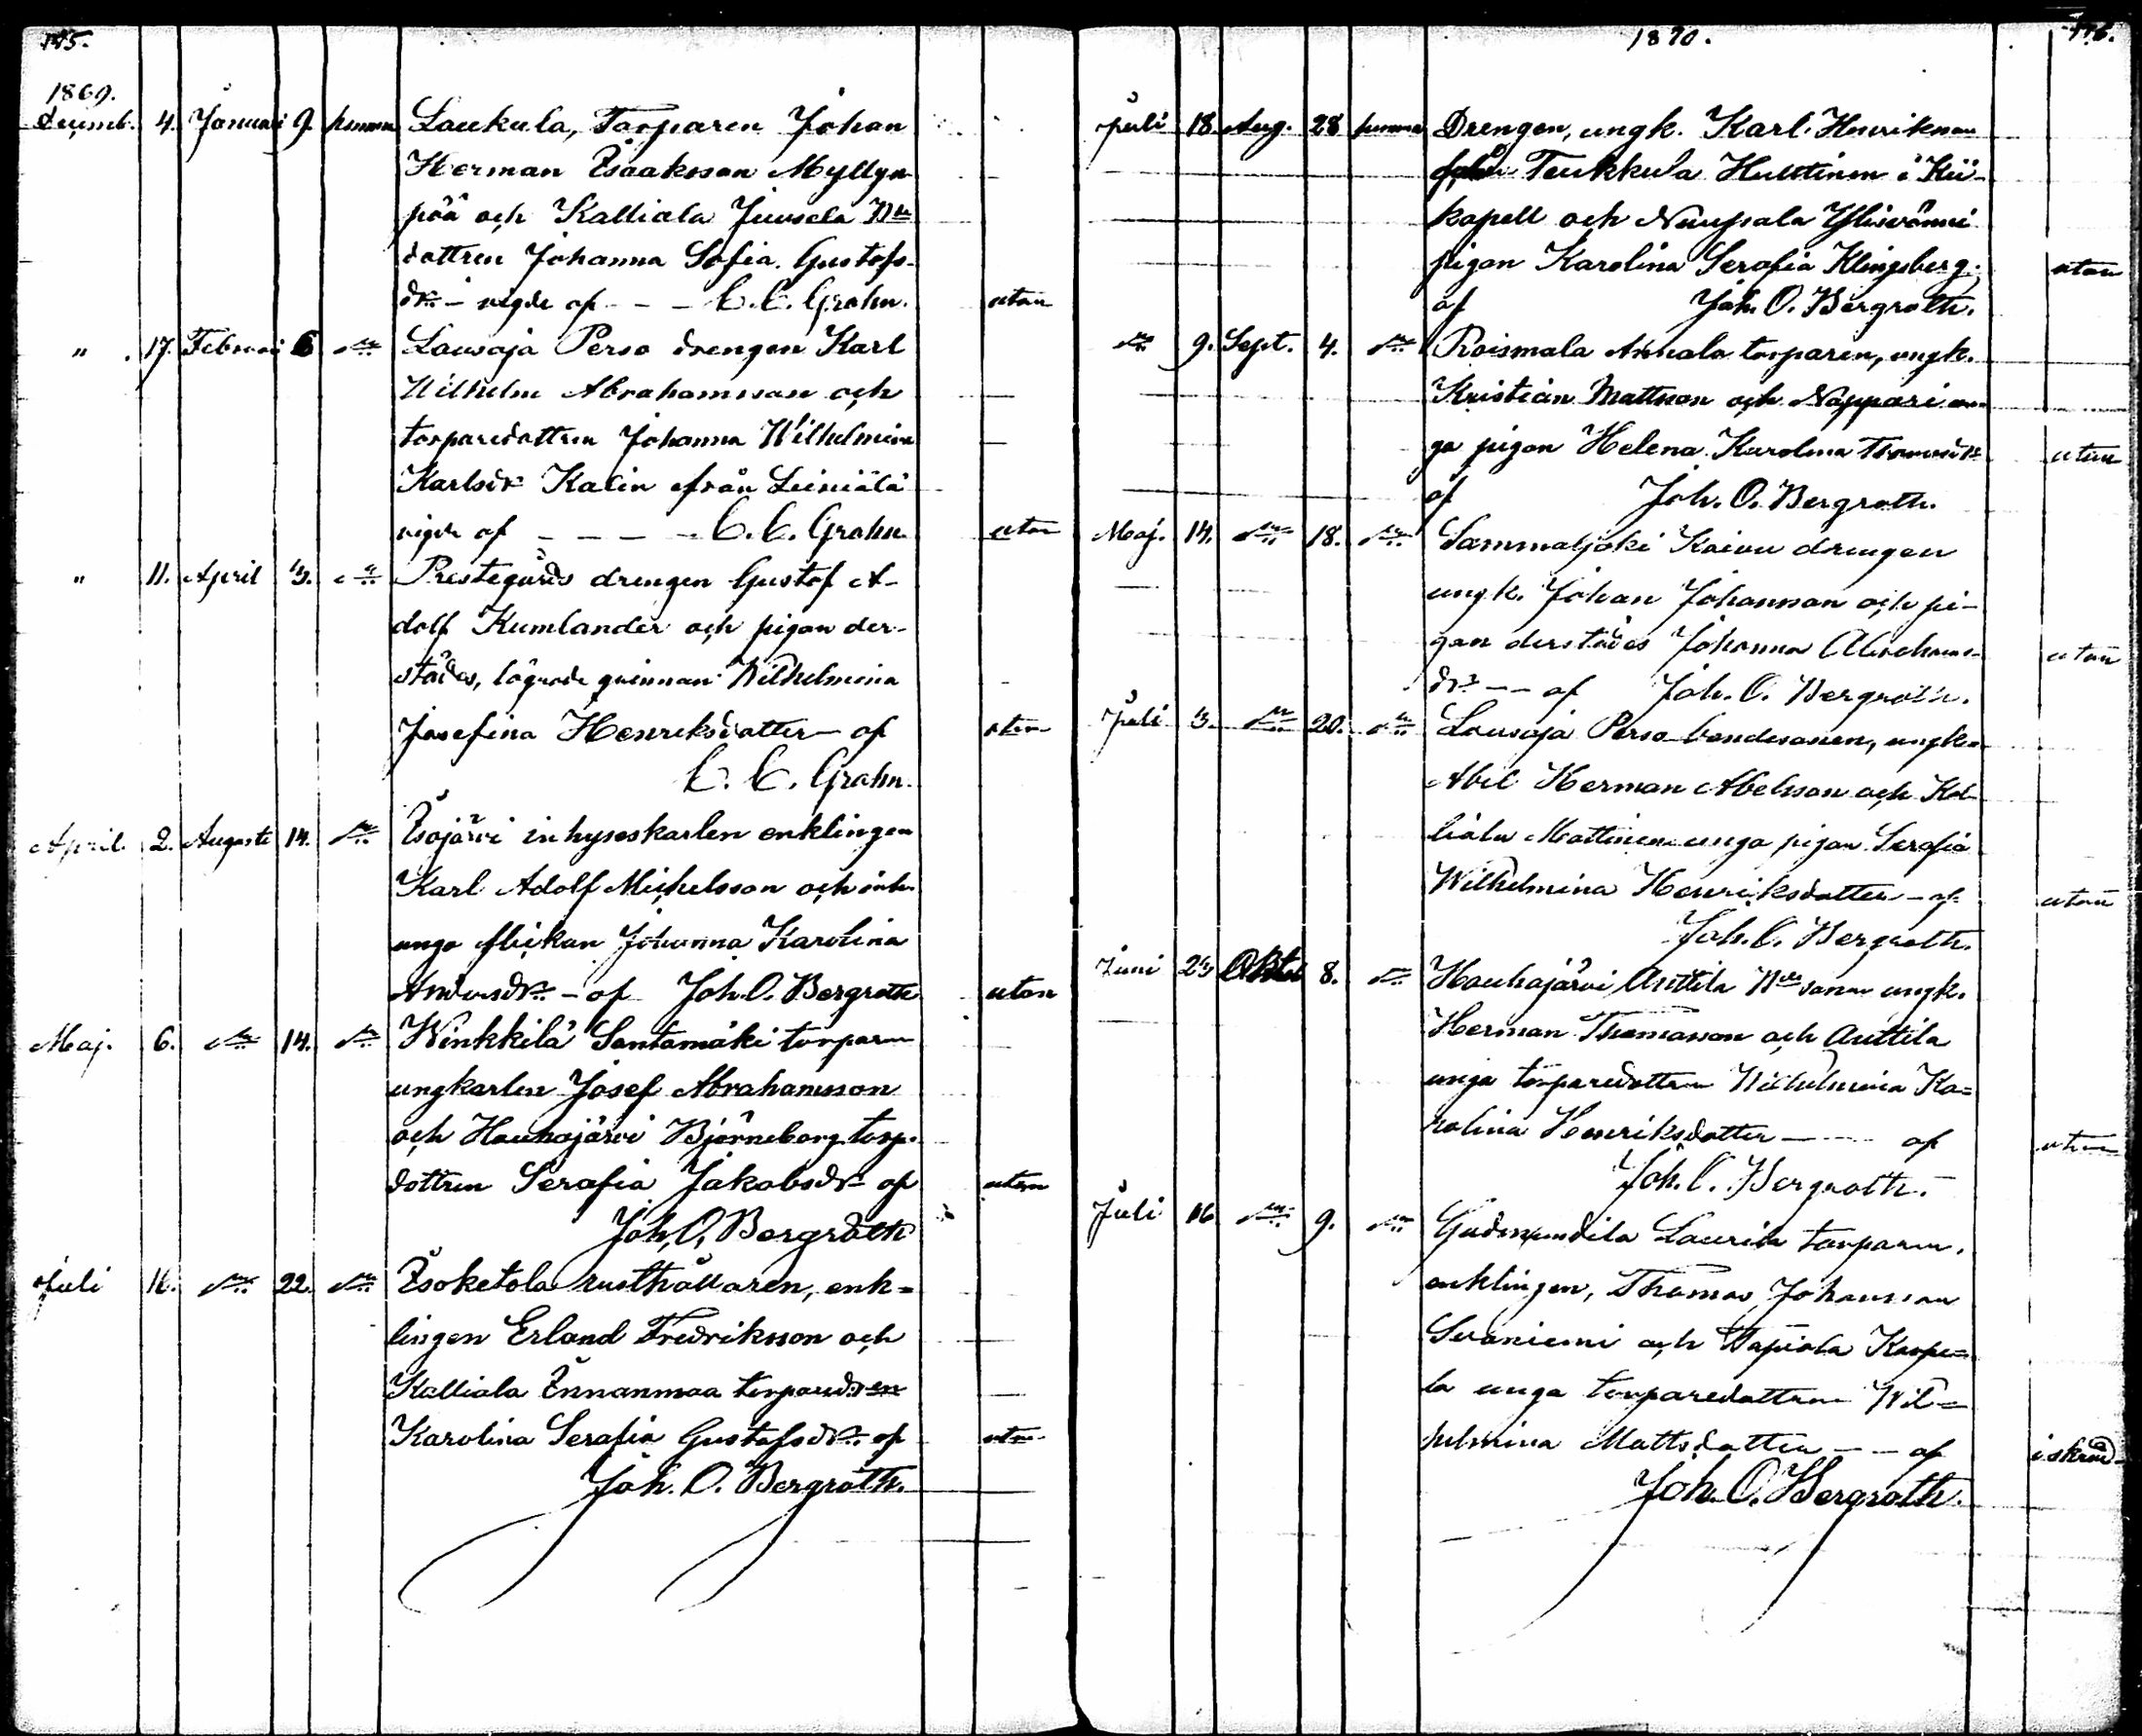 145.
1869.
Decemb. 4. Januari 9. hemma Laukula, Torparen Johan
Herman Isaaksson Myllyn
pää och Kalliala Juusela Nde
dottren Johanna Sofia Gustafs-
dr. – vigde af – – C. C. Grahn. utan
" 17. Februari 6 d:o Lousaja Perso drengen Karl
Wilhelm Abrahamsson och
torparedottren Johanna Wilhelmina
Karlsdr Kalin från Leiniälä
vigde af – – – – C. C. Grahn. utan
" 11. April 3. d:o Prestegårds drengen Gustaf A-
dolf Kumlander och pigan der-
städes, lägrade qvinnan Wilhelmina
Josefina Henriksdotter – af utan
C. C. Grahn.
April 2. Augusti 14. d:o Isojärvi inhyseskarlen enklingen
Karl Adolf Michelsson och inh.
unga flickan Johanna Karolina
Andersdr. – af Joh. O. Bergroth utan
Maj. 6. d:o 14. d:o Winkkilä Santamäki torparen
ungkarlen Josef Abrahamsson
och Houhajärvi Björneborg torp.
dottren Serafia Jakobsdr af utan
Joh. O. Bergroth
Juli 16. d:o 22. d:o Isoketola rusthållaren, enk=
lingen Erland Fredriksson och
Kalliala Innanmaa torparedren
Karolina Serafia Gustafsdr. af utan
Joh. O. Bergroth.
1870. 146.
Juli 18. Aug. 28 hemma Drengen, ungk. Karl Henriksson
från Teukkula Huhtinen i Kii-
kapell och Nuupala Yliswänni
pigan Karolina Serafia Klingsberg. utan
af Joh. O. Bergroth.
d:o 9. Sept. 4. d:o Roismala Annala torparen, ungk.
Kristian Mattsson och Nappari un-
ga pigan Helena Karolina Thomasdr utan
af Joh. O. Bergroth.
Maj. 14. d:o 18. d:o Sammaljoki Kaivu drengen
ungk. Johan Johansson och pi-
gan derstädes Johanna Abrahams- utan
dr. – – af Joh. O. Bergroth.
Juli 3. d:o 20. d:o Lousaja Perso bondesonen, ungk.
Abel Herman Abelsson och Kal-
liala Mattinen unga pigan Serafia
Wilhelmina Henriksdotter – af utan
Joh. O. Bergroth.
Juni 25 Oktob 8. d:o Houhajärvi Anttila Nde sonen ungk.
Herman Thomasson och Anttila
unga torparedottren Wilhelmina Ka=
rolina Henriksdotter – – – af utan
Joh. O. Bergroth.
Juli 16 d:o 9. d:o Gudmundila Laurila torparen,
enklingen, Thomas Johansson
Suoniemi och Tapiola Karpe=
la unga torparedottren Wil=
helmina Mattsdotter – – af i skrud
Joh. O. Bergroth.